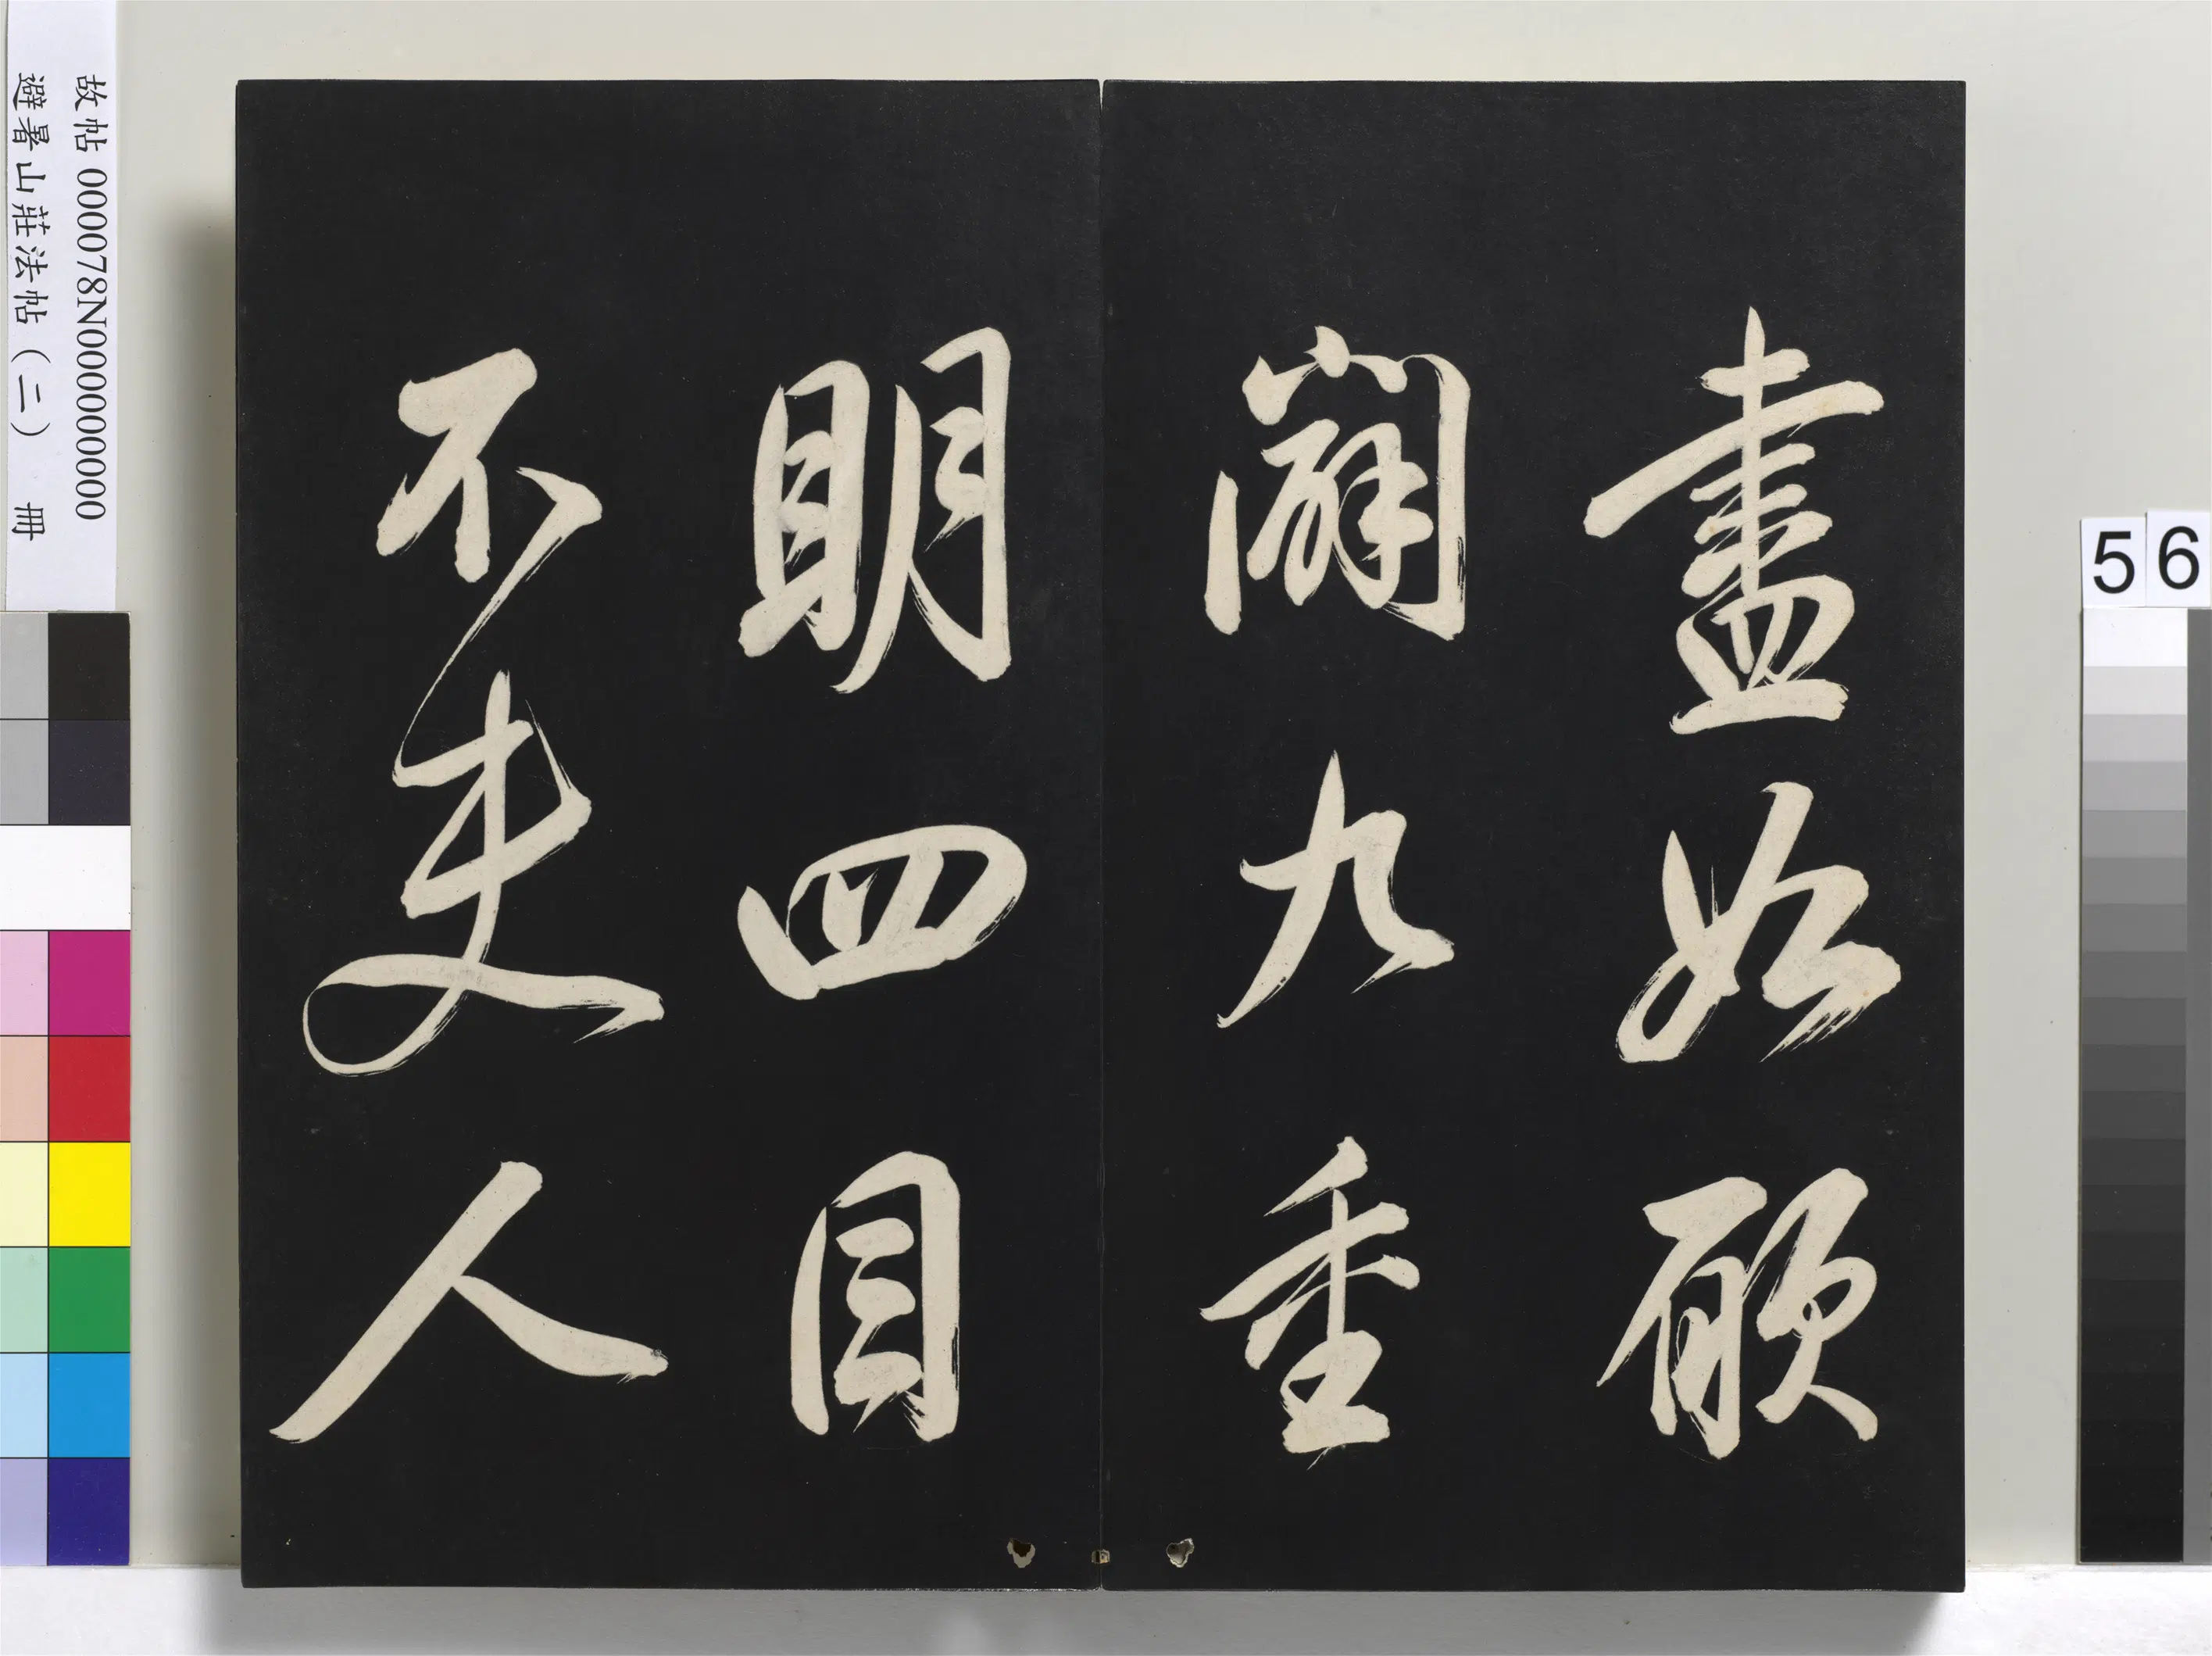 故帖 000078N000000000
避暑山莊法帖（二） 冊
盡始願
闢九重
明四目
不使人
56